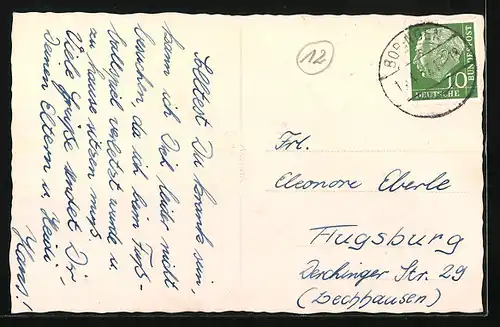 Solltest Du krank sein,
kann ich Dich leider nicht
besuchen, da ich beim Fuß-
ballspiel verletzt wurde u.
zu hause sitzen muß.
Viele Grüße sendet Dir,
Deinen Eltern u. Heidi
Hans!
12
Frl.
Eleonore Eberle
Augsburg
Derchinger Str. 29
(Lechhausen)
10
DEUTSCHE
BUNDESPOST